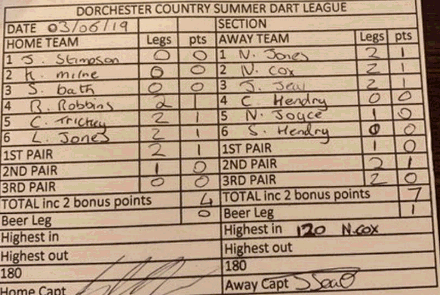 DORCHESTER COUNTRY SUMMER DART LEAGUE
DATE 03/06/19 SECTION
HOME TEAM Legs pts AWAY TEAM Legs pts
1 J. Stimpson 0 0 1 N. Jones 2 1
2 K. milne 0 0 2 N. Cox 2 1
3 S. bath 0 0 3 J. Seal 2 1
4 R. Robbins 2 1 4 C. Hendry 0 0
5 C. Trickey 2 1 5 N. Joyce 1 0
6 L. Jones 2 1 6 S. Hendry 0 0
1ST PAIR 2 1 1ST PAIR 1 0
2ND PAIR 1 0 2ND PAIR 2 1
3RD PAIR 0 0 3RD PAIR 2 0
TOTAL inc 2 bonus points 4 TOTAL inc 2 bonus points 7
Beer Leg 0 Beer Leg 1
Highest in Highest in 120 N.cox
Highest out Highest out
180 180
Home Capt Away Capt J Seal